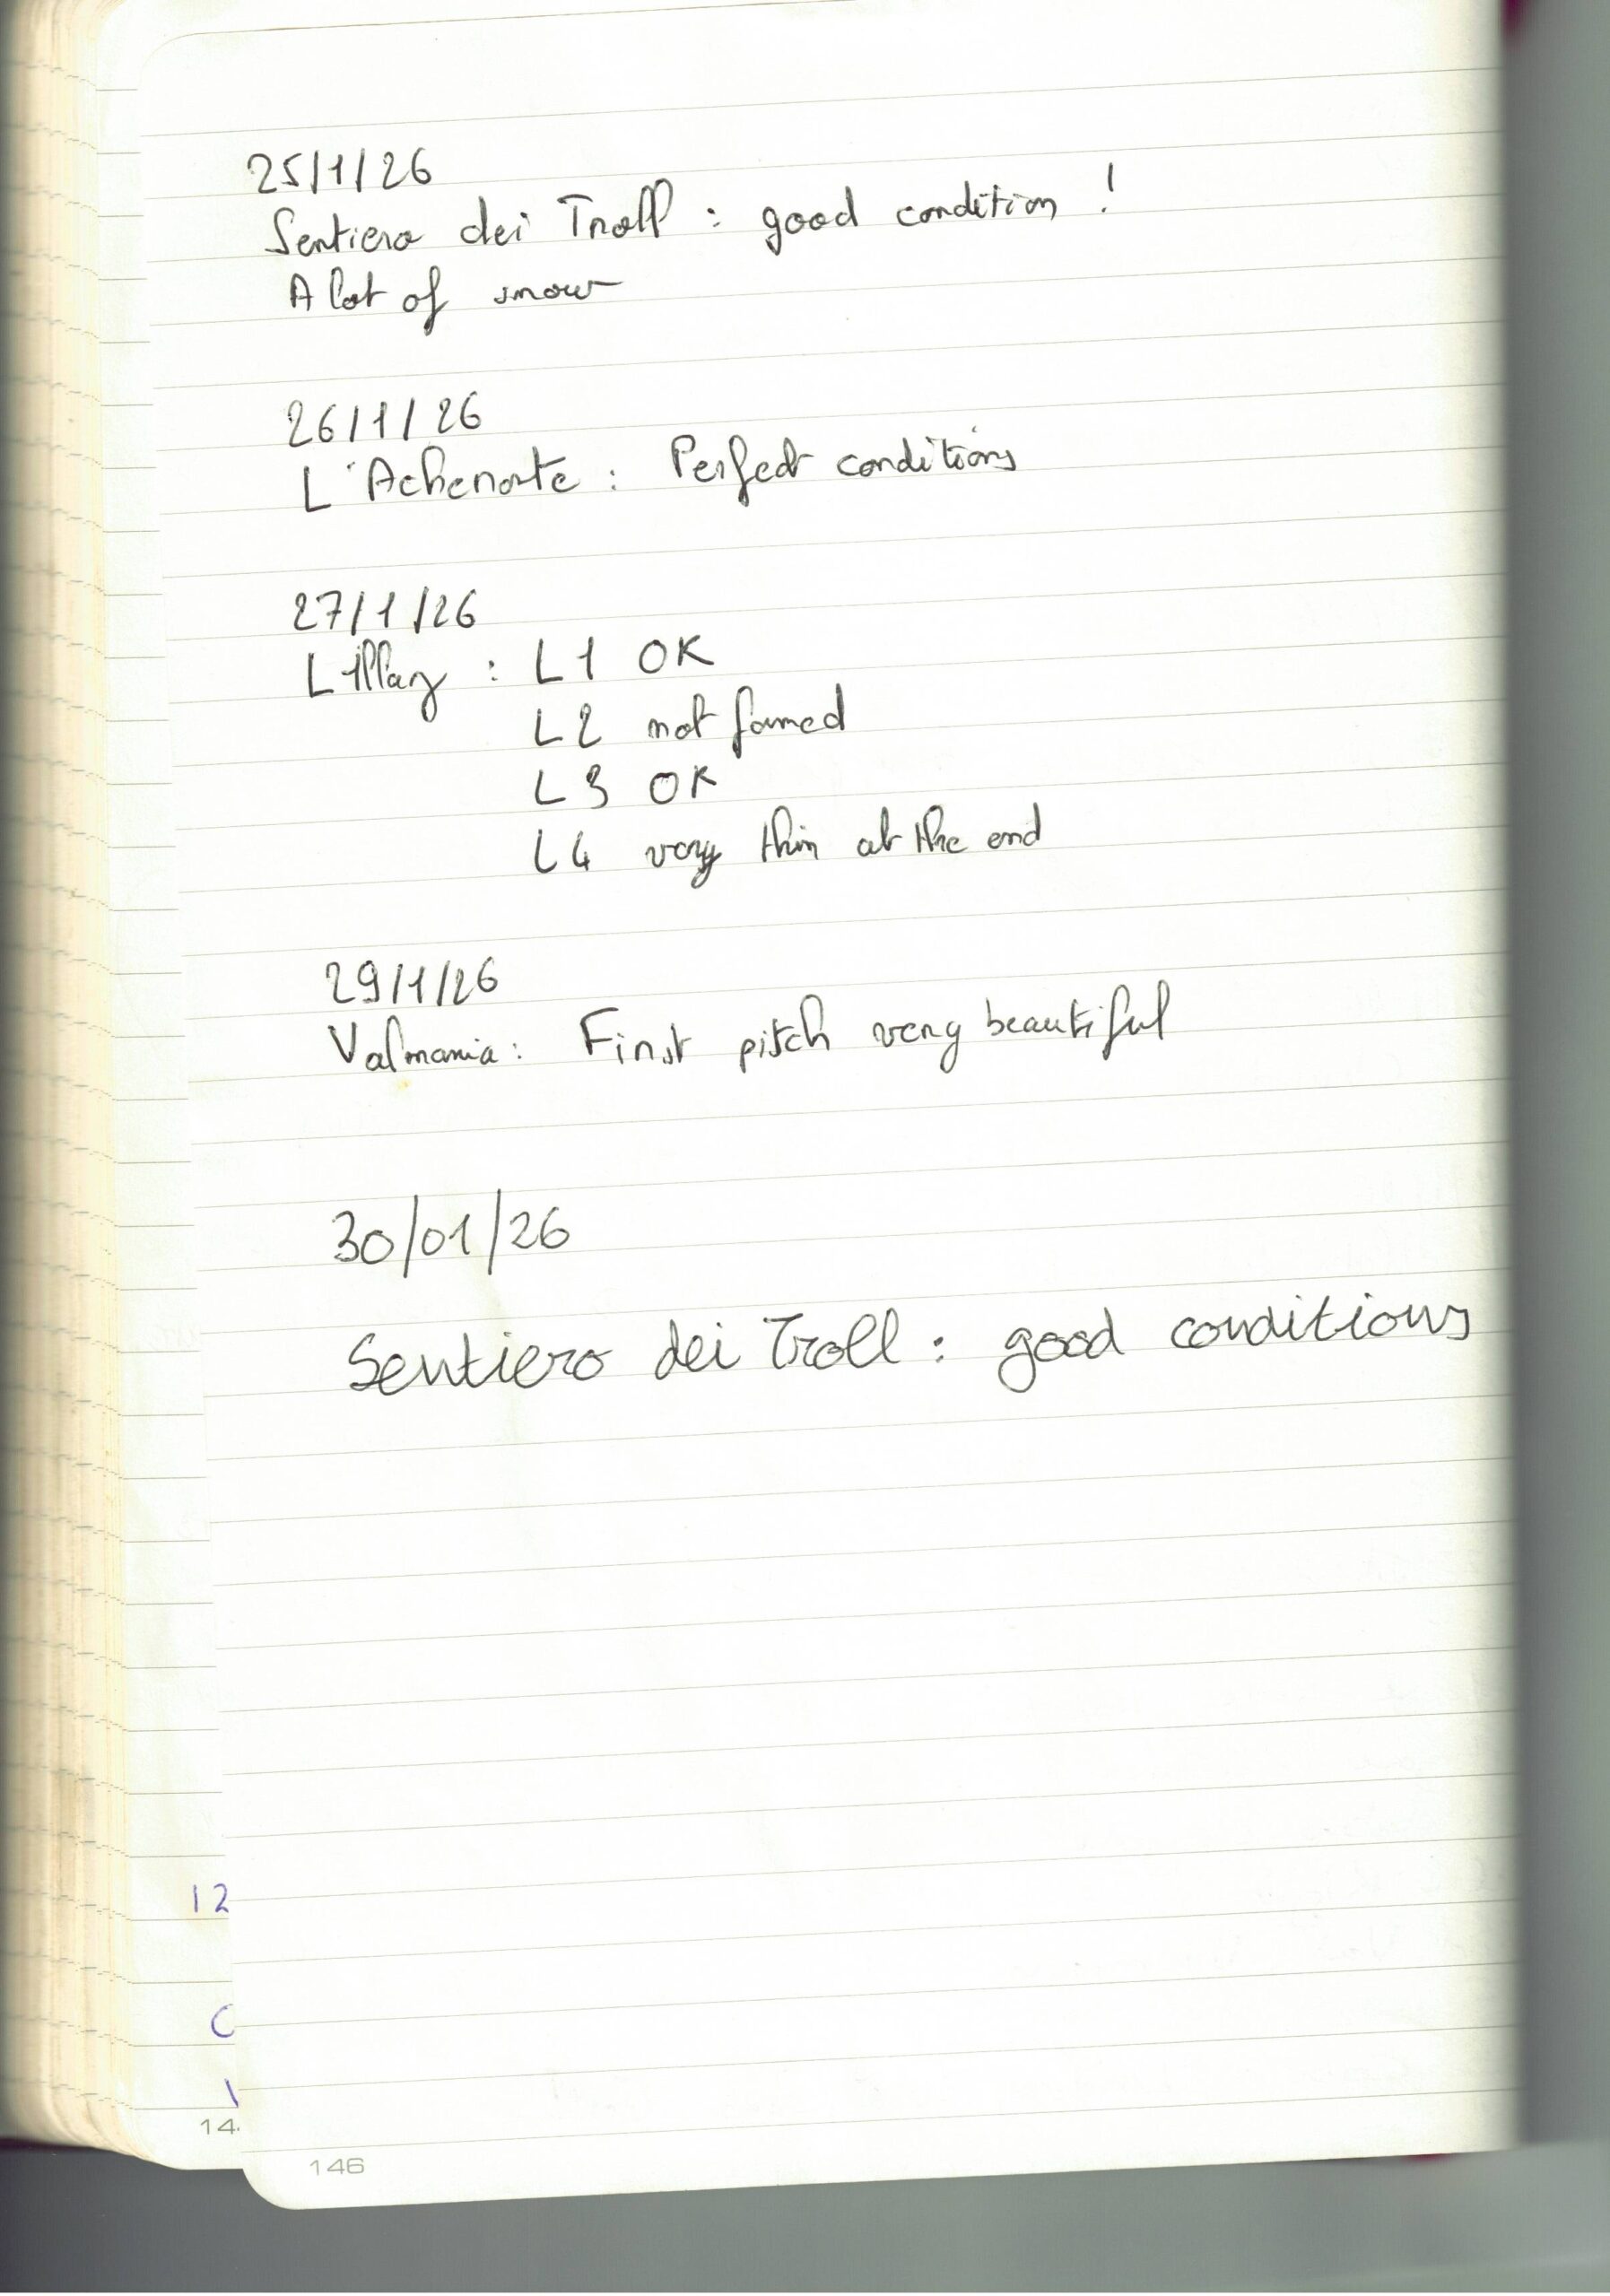 25/1/26
Sentiero dei Troll : good condition !
A lot of snow
26/1/26
L'Acheronte : Perfect conditions
27/1/26
Lillaz : L1 OK
L2 not formed
L3 OK
L4 very thin at the end
29/1/26
Valmania : First pitch very beautiful
30/01/26
Sentiero dei Troll : good conditions
12
C
14
146